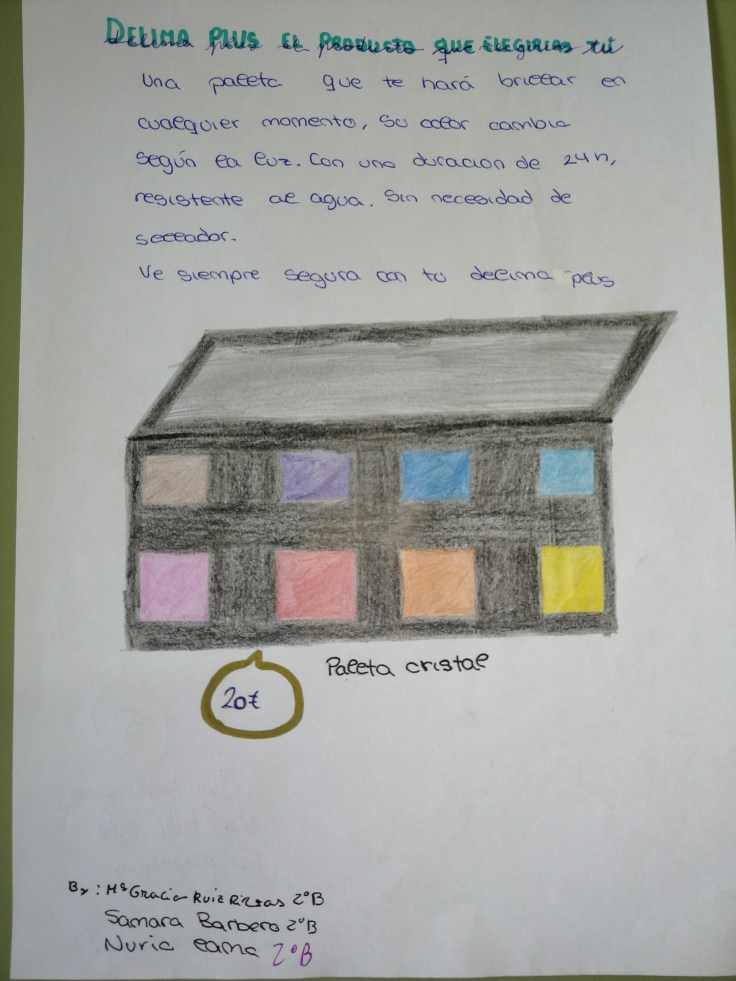 DELIMA PLUS EL PRODUCTO QUE ELEGIRIAS TÚ
Una paleta que te hará brillar en
cualquier momento, su color cambia
según la luz. Con una duracion de 24h,
resistente al agua. Sin necesidad de
sellador.
Ve siempre segura con tu delima plus
Paleta cristal
20€
By: Mª Gracia Ruiz 2ºB
Samara Barbero 2ºB
Nuria 2ºB